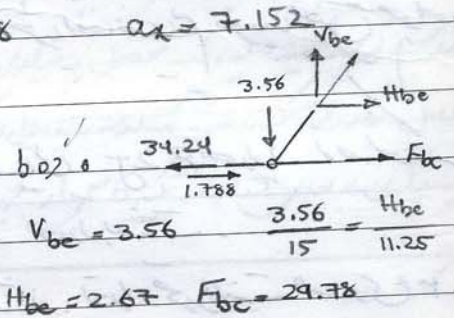 ax = 7.152
Vbe
3.56
Hbe
34.24
Fbc
1.788
Vbe = 3.56
3.56/15 = Hbe/11.25
Hbe = 2.67 Fbc = 29.78